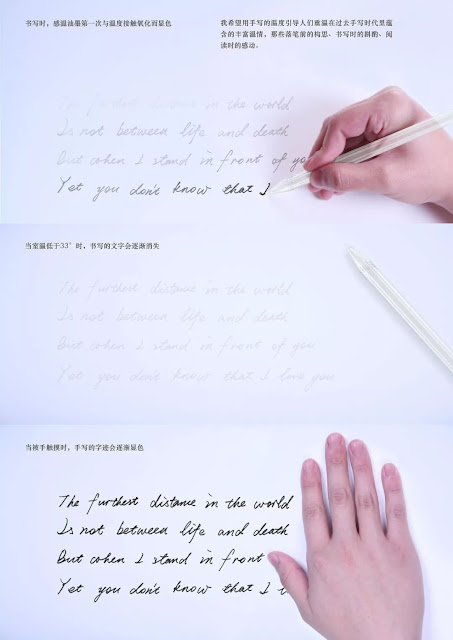 书写时，感温油墨第一次与温度接触氧化而显色
我希望用手写的温度引导人们重温在过去手写时代里蕴
含的丰富温情，那些落笔前的构思、书写时的斟酌、阅
读时的感动。
The furthest distance in the world
Is not between life and death
But when I stand in front of you
Yet you don't know that I
当室温低于33°时，书写的文字会逐渐消失
The furthest distance in the world
Is not between life and death
But when I stand in front of you
Yet you don't know that I love you
当被手触摸时，手写的字迹会逐渐显色
The furthest distance in the world
Is not between life and death
But when I stand in front
Yet you don't know that I